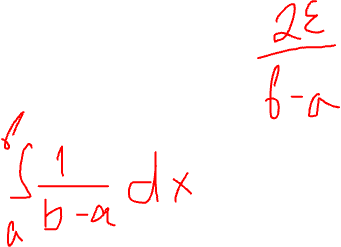 2ε
b-a
b
∫ 1/(b-a) dx
a